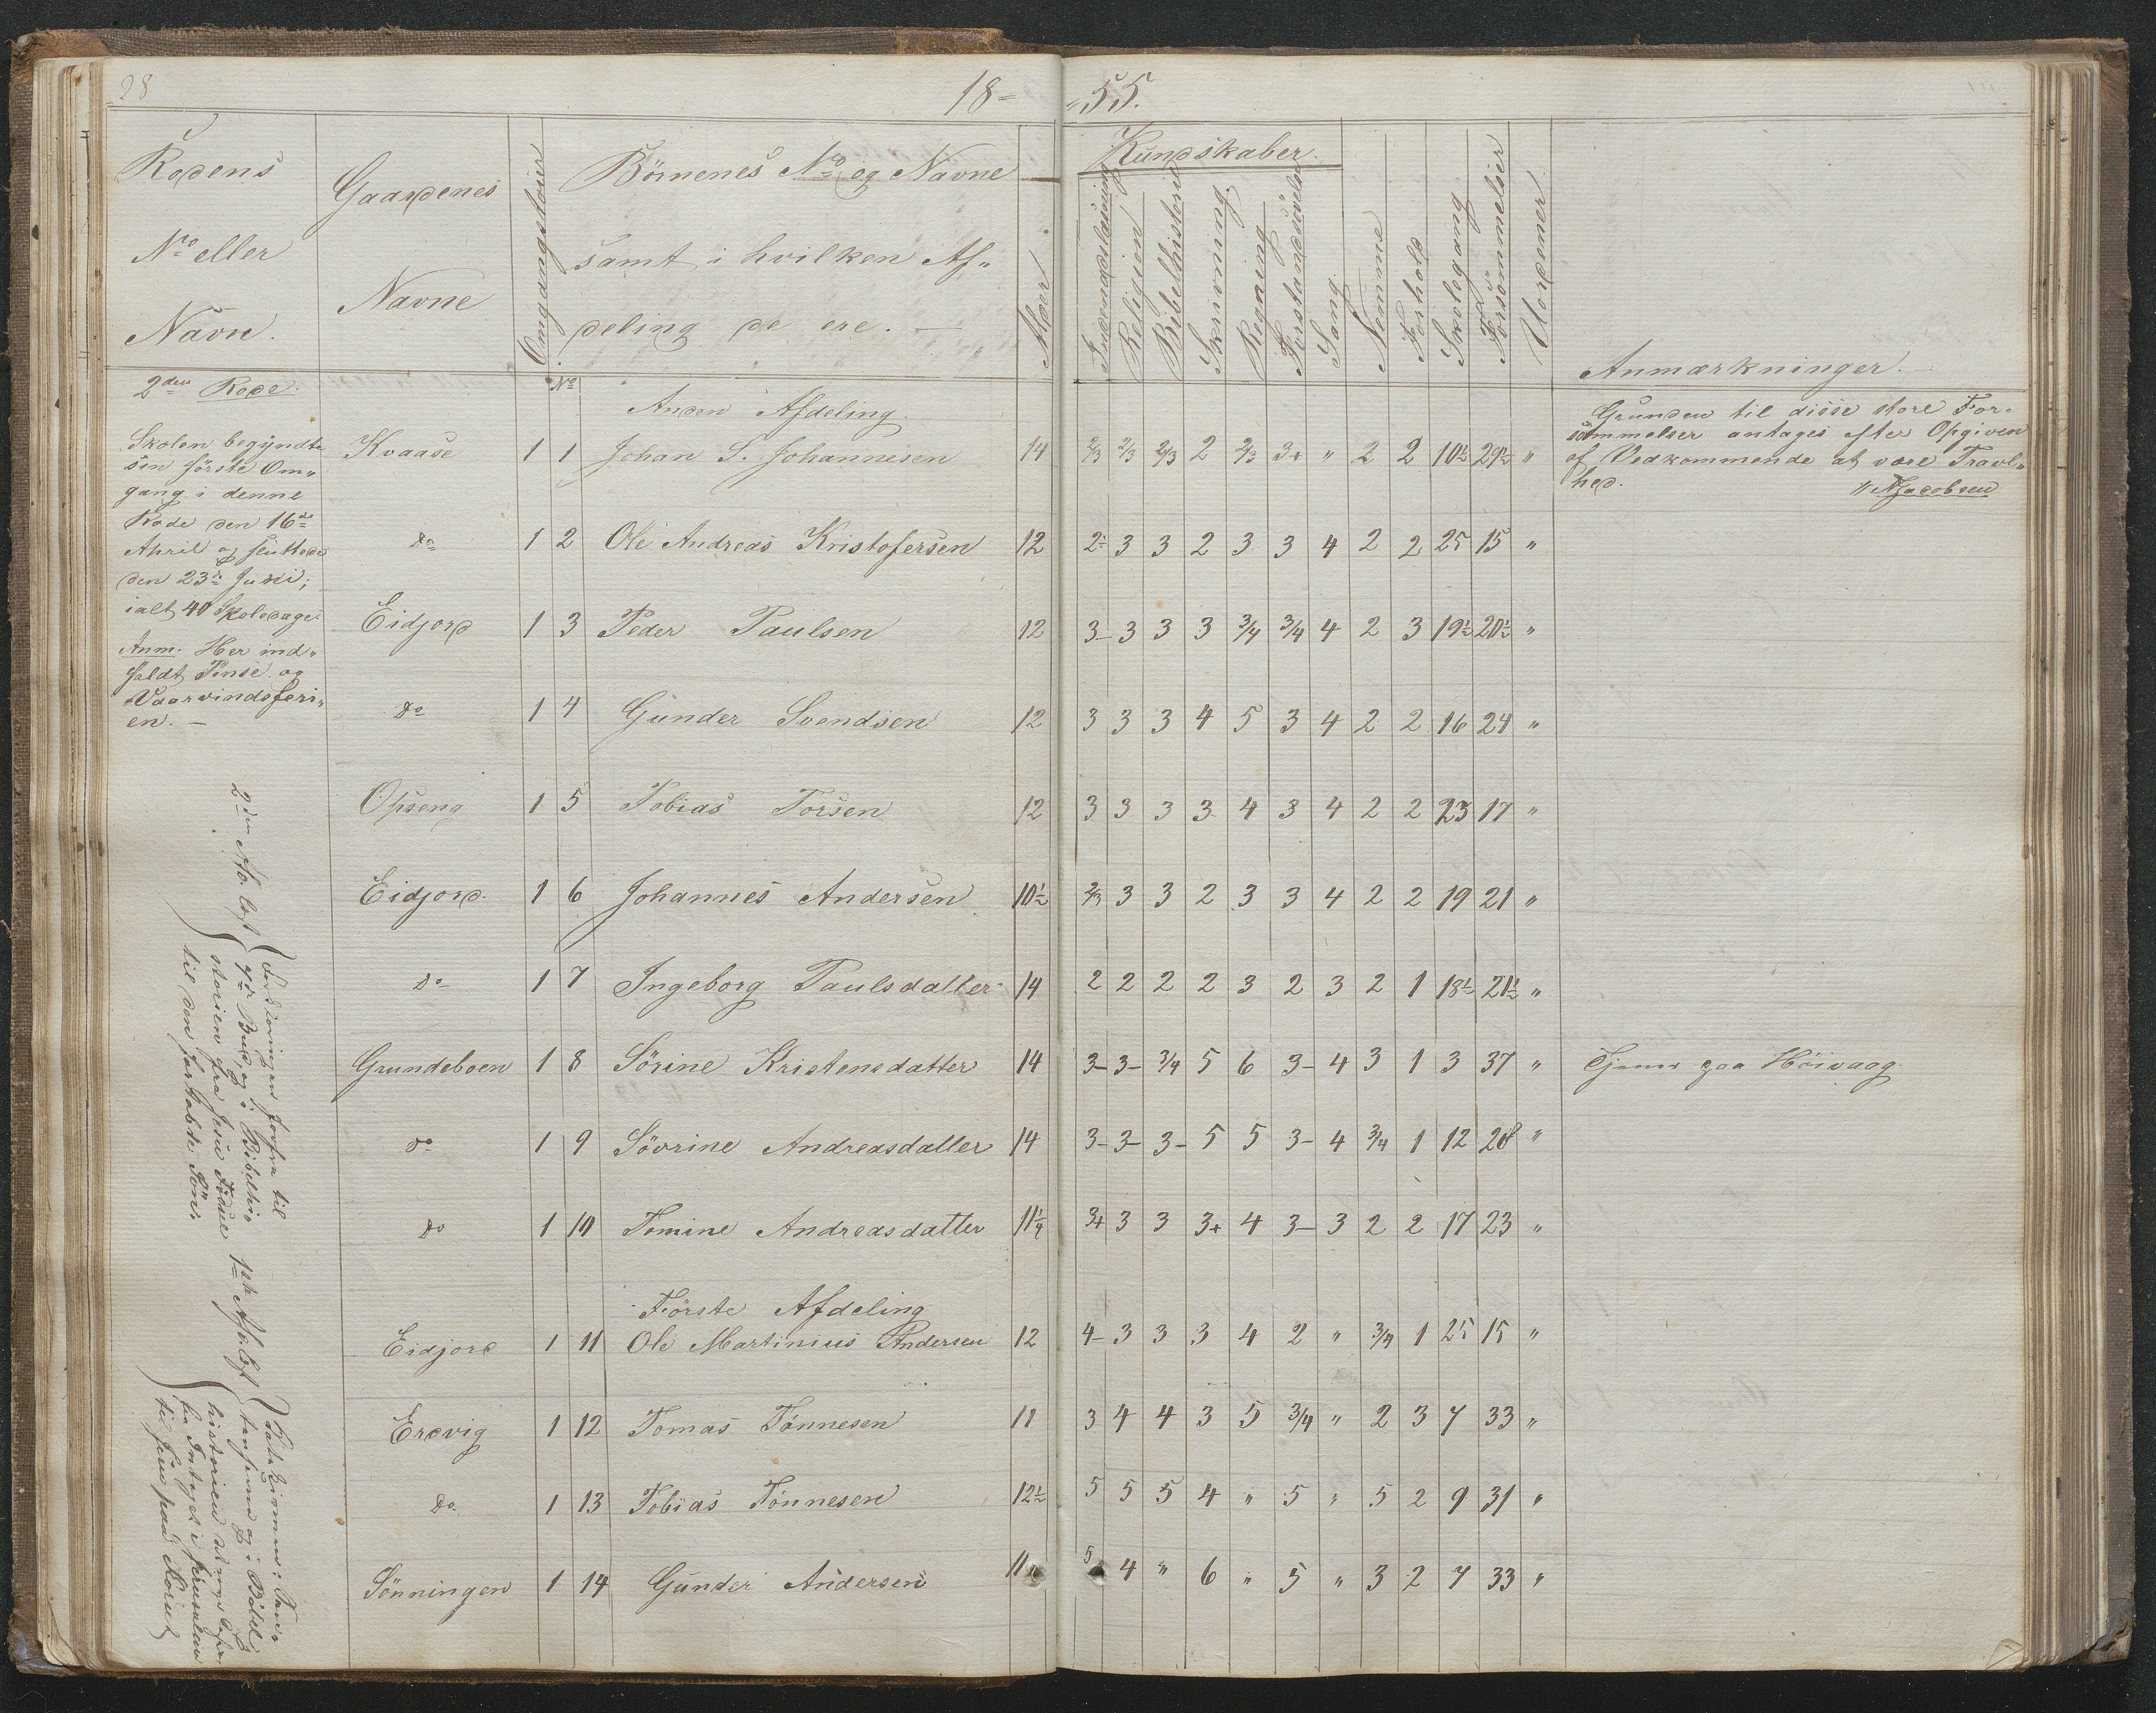 28
18= =55.
Rodens No eller Navn.
Gaardenes Navne
Omgangstour
Börnenes No og Navne
samt i hvilken Af=
deling de ere. —
Alder
Kundskaber.
Indenadslæsning
Religion
Bibelhistorie
Skrivning
Regning
Forstandsövelse
Sang
Nemme
Forhold
Skolegang
Forsömmelser
Uordener
Anmærkninger.
2den Rode.
Skolen begyndte
sin förste Om=
gang i denne
Rode den 16de
April og sluttede
den 23de Juni;
ialt 40 Skoledage.
Anm. Her ind=
faldt Pinse og
Vaarvindsferi=
en. —
No
Anden Afdeling.
Kvaase 1 1 Johan S. Johannesen 14 2/3 2/3 2/3 2 2/3 3+ " 2 2 10½ 29½ "
Grunden til disse store For=
sömmelser antages efter Opgiven
af Vedkommende at være Travl=
hed.
NJacobsen
do 1 2 Ole Andreas Kristofersen 12 2÷ 3 3 2 3 3 4 2 2 25 15 "
Eidjord 1 3 Peder Paulsen 12 3- 3 3 3 3/4 3/4 4 2 3 19½ 20½ "
do 1 4 Gunder Svendsen 12 3 3 3 4 5 3 4 2 2 16 24 "
Opseng 1 5 Tobias Torsen 12 3 3 3 3 4 3 4 2 2 23 17 "
Eidjord. 1 6 Johannes Andersen 10½ 2/3 3 3 2 3 3 4 2 2 19 21 "
do 1 7 Ingeborg Paulsdatter 14 2 2 2 2 3 2 3 2 1 18½ 21½ "
Grundeboen 1 8 Sörine Kristensdatter 14 3- 3- 3/4 5 6 3- 4 3 1 3 37 " Tjener paa Höivaag.
do 1 9 Sövrine Andreasdatter 14 3- 3- 3- 5 5 3- 4 3/4 1 12 28 "
do 1 10 Tomine Andreasdatter 11¼ 3+ 3 3 3+ 4 3- 3 2 2 17 23 "
Förste Afdeling
Eidjord 1 11 Ole Martinius Andersen 12 4- 3 3 3 4 2 " 3/4 1 25 15 "
Eredvig 1 12 Tomas Tönnesen 11 3 4 4 3 5 3/4 " 2 3 7 33 "
do 1 13 Tobias Tönnesen 12½ 5 5 5 4 " 5 " 5 2 9 31 "
Sönningen 1 14 Gunder Andersen 11 5 4 " 6 " 5 " 3 2 7 33 "
2den Afd. læst
Forklaringen forfra til
7de Bud og i Bibelhi=
storien fra Jesu Födsel
til den fortabte Sön.
1ste Afd. læst
historien
fra Indtoget i Jerusalem
til Jesu paa Korset